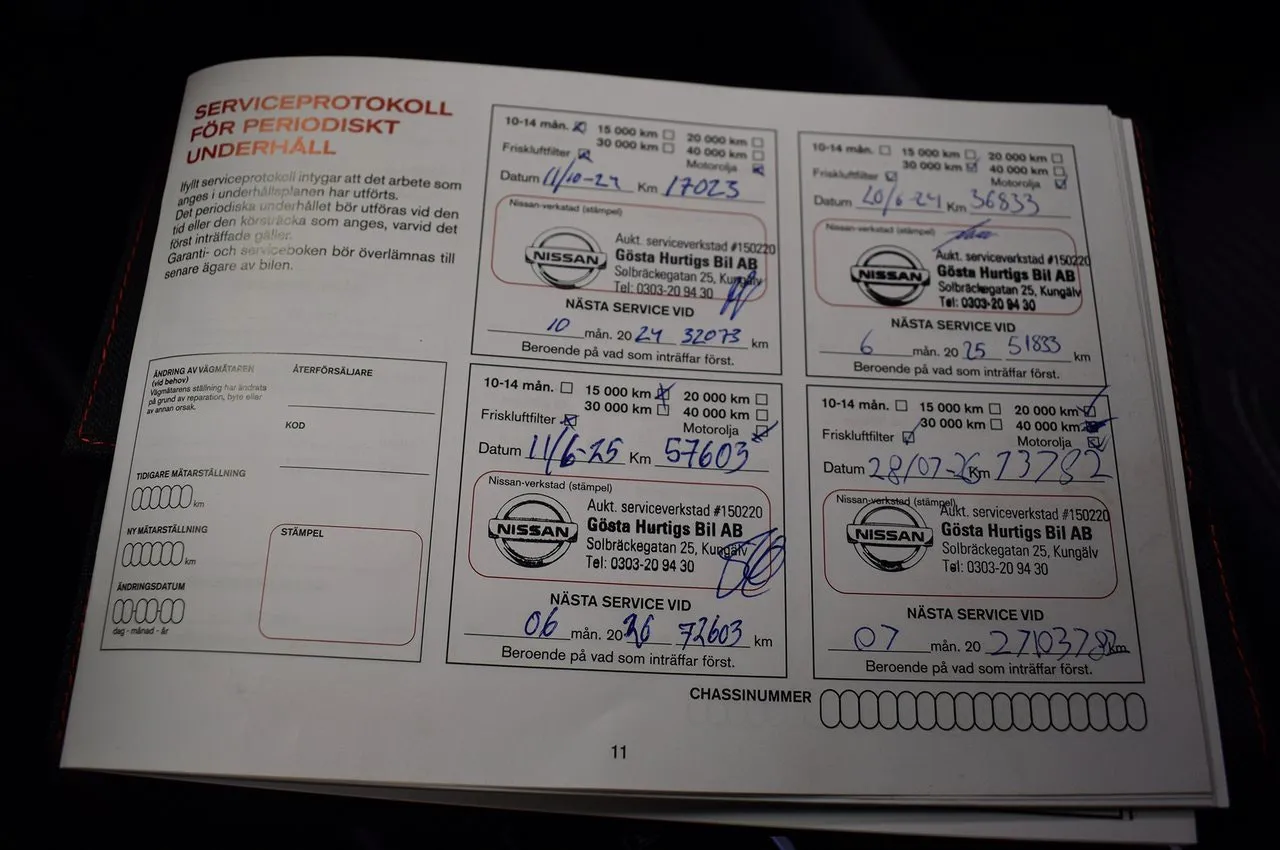 SERVICEPROTOKOLL
FÖR PERIODISKT
UNDERHÅLL
Ifyllt serviceprotokoll intygar att det arbete som
anges i underhållsplanen har utförts.
Det periodiska underhållet bör utföras vid den
tid eller den körsträcka som anges, varvid det
först inträffade gäller.
Garanti- och serviceboken bör överlämnas till
senare ägare av bilen.
10-14 mån. 15 000 km 20 000 km
30 000 km 40 000 km
Friskluftfilter Motorolja
Datum 11/10-21 Km 17023
Nissan-verkstad (stämpel)
NISSAN
Aukt. serviceverkstad #150220
Gösta Hurtigs Bil AB
Solbräckegatan 25, Kungälv
Tel: 0303-20 94 30
NÄSTA SERVICE VID
10 mån. 20 24 32073 km
Beroende på vad som inträffar först.
10-14 mån. 15 000 km 20 000 km
30 000 km 40 000 km
Friskluftfilter Motorolja
Datum 20/6-24 Km 36833
Nissan-verkstad (stämpel)
NISSAN
Aukt. serviceverkstad #150220
Gösta Hurtigs Bil AB
Solbräckegatan 25, Kungälv
Tel: 0303-20 94 30
NÄSTA SERVICE VID
6 mån. 20 25 51833 km
Beroende på vad som inträffar först.
ÄNDRING AV VÄGMÄTAREN
(vid behov)
Vägmätarens ställning har ändrats
på grund av reparation, byte eller
av annan orsak.
TIDIGARE MÄTARSTÄLLNING
km
NY MÄTARSTÄLLNING
km
ÄNDRINGSDATUM
dag - månad - år
ÅTERFÖRSÄLJARE
KOD
STÄMPEL
10-14 mån. 15 000 km 20 000 km
30 000 km 40 000 km
Friskluftfilter Motorolja
Datum 11/6-25 Km 57603
Nissan-verkstad (stämpel)
NISSAN
Aukt. serviceverkstad #150220
Gösta Hurtigs Bil AB
Solbräckegatan 25, Kungälv
Tel: 0303-20 94 30
NÄSTA SERVICE VID
06 mån. 20 26 72603 km
Beroende på vad som inträffar först.
10-14 mån. 15 000 km 20 000 km
30 000 km 40 000 km
Friskluftfilter Motorolja
Datum 28/07-26 Km 73782
Nissan-verkstad (stämpel)
NISSAN
Aukt. serviceverkstad #150220
Gösta Hurtigs Bil AB
Solbräckegatan 25, Kungälv
Tel: 0303-20 94 30
NÄSTA SERVICE VID
07 mån. 20 27 103782 km
Beroende på vad som inträffar först.
CHASSINUMMER
11